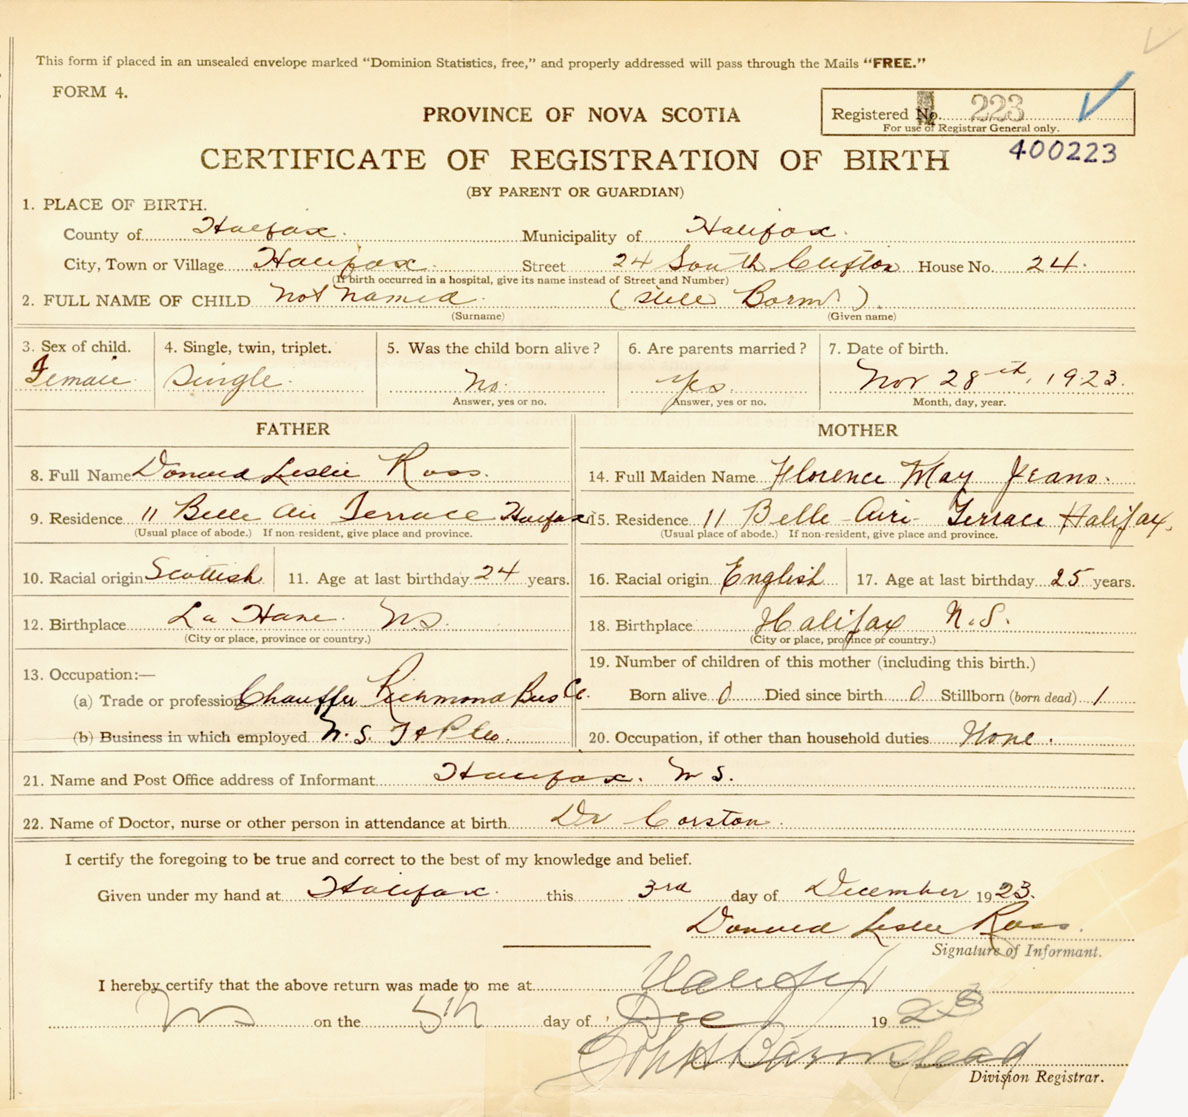 This form if placed in an unsealed envelope marked "Dominion Statistics, free," and properly addressed will pass through the Mails "FREE."
FORM 4.
PROVINCE OF NOVA SCOTIA
Registered No. 223
For use of Registrar General only.
400223
CERTIFICATE OF REGISTRATION OF BIRTH
(BY PARENT OR GUARDIAN)
1. PLACE OF BIRTH.
County of Halifax. Municipality of Halifax.
City, Town or Village Halifax. Street 24 South Clifton House No. 24.
(If birth occurred in a hospital, give its name instead of Street and Number)
2. FULL NAME OF CHILD Not Named. (Still Born)
(Surname) (Given name)
3. Sex of child. 4. Single, twin, triplet. 5. Was the child born alive? 6. Are parents married? 7. Date of birth.
Female Single. No. Yes. Nov 28th, 1923.
Answer, yes or no. Answer, yes or no. Month, day, year.
FATHER MOTHER
8. Full Name Donald Leslie Ross. 14. Full Maiden Name Florence May Jeans.
9. Residence 11 Belle Air Terrace Halifax 15. Residence 11 Belle-Aire-Terrace Halifax,
(Usual place of abode.) If non-resident, give place and province. (Usual place of abode.) If non-resident, give place and province.
10. Racial origin Scottish 11. Age at last birthday 24 years. 16. Racial origin English 17. Age at last birthday 25 years.
12. Birthplace La Have NS. 18. Birthplace Halifax N.S.
(City or place, province or country.) (City or place, province or country.)
13. Occupation:— 19. Number of children of this mother (including this birth.)
(a) Trade or profession Chauffer Richmond Bus Co. Born alive 0 Died since birth 0 Stillborn (born dead) 1
(b) Business in which employed N.S. T & P Co. 20. Occupation, if other than household duties None.
21. Name and Post Office address of Informant Halifax. NS.
22. Name of Doctor, nurse or other person in attendance at birth Dr Corston.
I certify the foregoing to be true and correct to the best of my knowledge and belief.
Given under my hand at Halifax. this 3rd day of December 1923.
Donald Leslie Ross.
Signature of Informant.
I hereby certify that the above return was made to me at Halifax
NS on the 5th day of Dec 1923
John S Barnstead
Division Registrar.